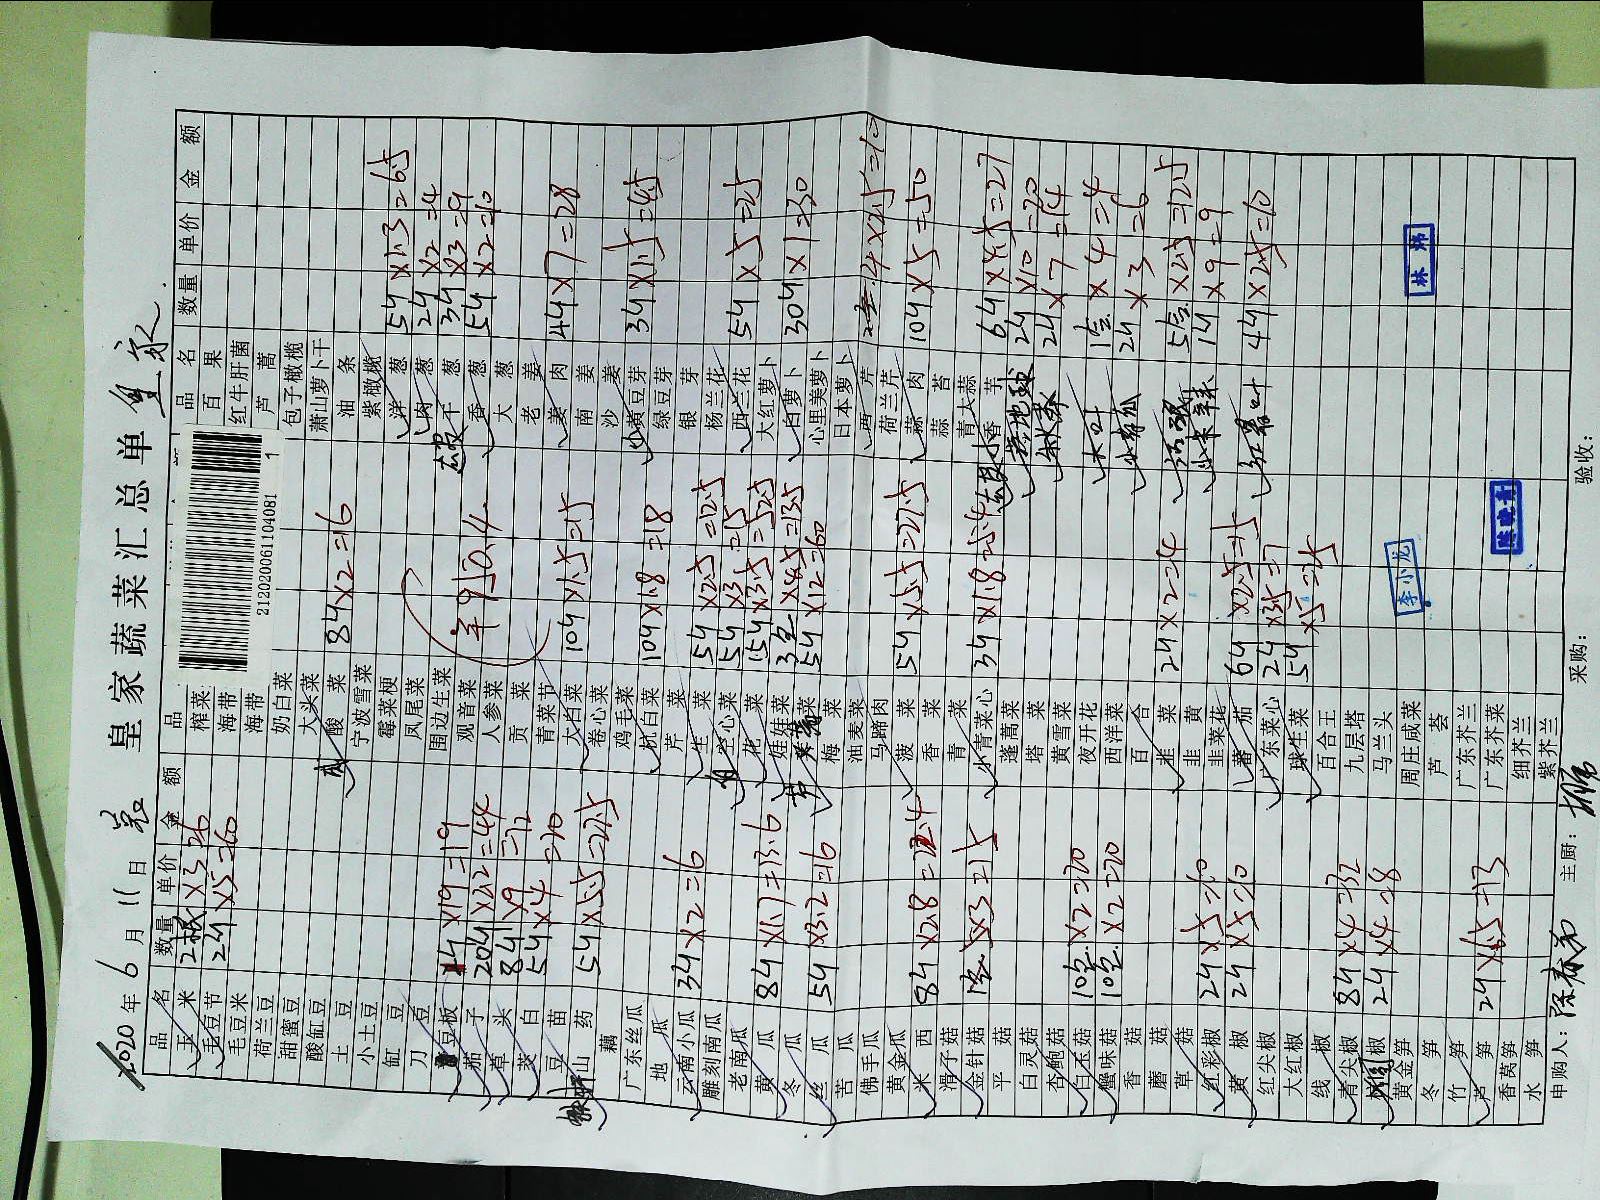 皇家蔬菜汇总单
2020年6月11日
212020061104081 1
品名 数量 单价 金额
玉米 2
毛豆节 24×2.5=60
毛豆米
荷兰豆
甜蜜豆
酸缸豆
土豆
小土豆
缸豆
刀豆
豆板 ×19=19
茄子 204×2.2=44
草头 84×9=72
茭白 54×4=20
豆苗
山药 54×5.5=27.5
藕
广东丝瓜
地瓜
云南小瓜 34×2=6
雕刻南瓜
老南瓜
黄瓜 84×1.7=13.6
冬瓜
丝瓜 54×3.2=16
苦瓜
佛手瓜
黄金瓜
米西 84×2.8=22.4
滑子菇
金针菇 ×3=15
平菇
白灵菇
杏鲍菇
白玉菇 10包×2=20
蟹味菇 10包×2=20
香菇
蘑菇
草菇
红彩椒 24×5=10
黄椒 24×5=10
红尖椒
大红椒
线椒
青尖椒 84×4=32
椒 24×4=8
黄金笋
冬笋
竹笋
芦笋 24×6.5=13
香莴笋
水笋
品
榨菜
海带
海带
奶白菜
大头菜
酸菜 84×2=16
宁波雪菜
霉菜梗
凤尾菜
围边生菜
观音菜 ¥950.4
人参菜
贡菜
青菜节
大白菜 104×1.5=15
卷心菜
鸡毛菜
杭白菜 104×1.8=18
芹菜
生菜 54×2.5=12.5
空心菜 54×3=15
花菜 154×3.5=52.5
娃娃菜 3包×4.5=13.5
菜 54×12=60
梅菜
油麦菜
马蹄肉
菠菜 54×5.5=27.5
香菜
青菜
小青菜心 34×1.8=5.4
蓬蒿菜
塔菜
黄雪菜
夜开花
西洋菜
百合
韭菜 24×2=4
韭黄
韭菜花
蕃茄 64×2.5=15
广东菜心 24×3.5=7
球生菜 54×5=25
百合王
九层塔
马兰头
周庄咸菜
芦荟
广东芥兰
广东芥菜
细芥兰
紫芥兰
品名 数量 单价 金额
百果
红牛肝菌
芦蒿
包子橄榄
萧山萝卜干
油条
紫橄榄
洋葱 54×1.3=6.5
肉葱 24×2=4
干葱 34×3=9
香葱 54×2=10
大葱
老姜
姜肉 44×7=28
南姜
沙姜
黄豆芽 34×1.5=4.5
绿豆芽
银芽
杨兰花
西兰花 54×5=25
大红萝卜
白萝卜 304×1=30
心里美萝卜
日本萝卜
西芹 4×2.5=10
荷兰芹
蒜肉 104×5=50
蒜苔
青大蒜
香芋 64×4.5=27
24×10=20
24×7=14
1盒×4=4
小青瓜 24×3=6
5盒×2.5=12.5
小米辣 14×9=9
44×2.5=10
林炜
李小龙
陈晓青
申购人：
主厨：
采购：
验收：